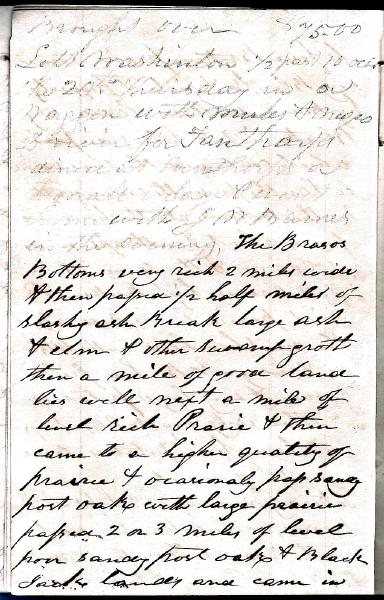 Brought over $75.00
Left Washington ½ past 10 oclo
the 29th Thursday in a
Waggon with mules & negro
driver for Fanthorps
dined at Fanthorps a
with J W Barnes
in the evening, The Brasos
Bottoms very rich 2 miles wide
& then passed ½ half miles of
slashy ash Break large ash
& elm & other swamp groth
then a mile of good land
lies well next a mile of
level rich Prarie & then
came to a higher quality of
prairie & ocasionaly pass sandy
post oaks with large prairie
passed 2 or 3 miles of level
poor sandy post oaks & Black
Jacks lands and came in